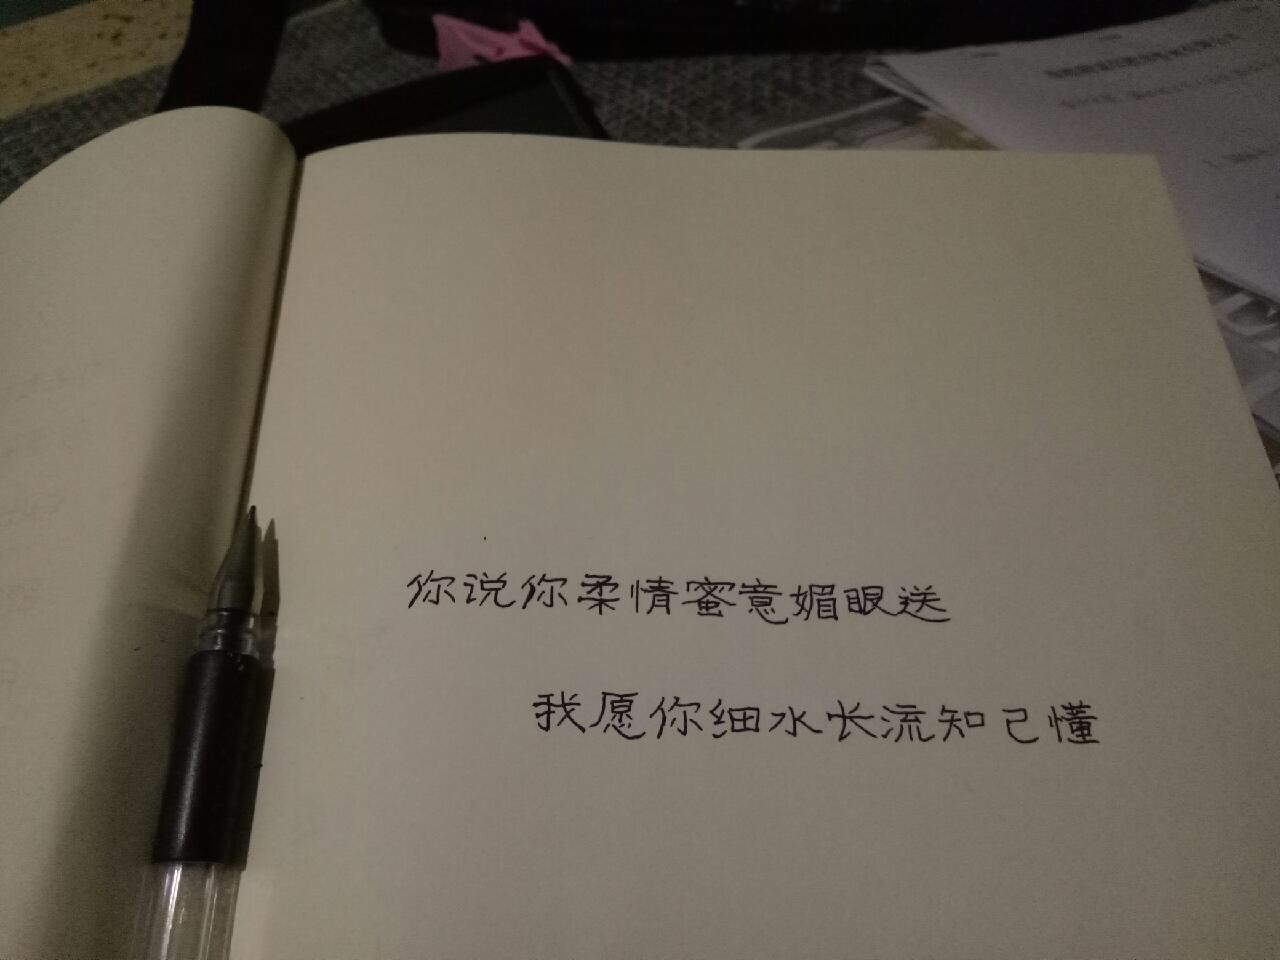 你说你柔情蜜意媚眼送
我愿你细水长流知己懂